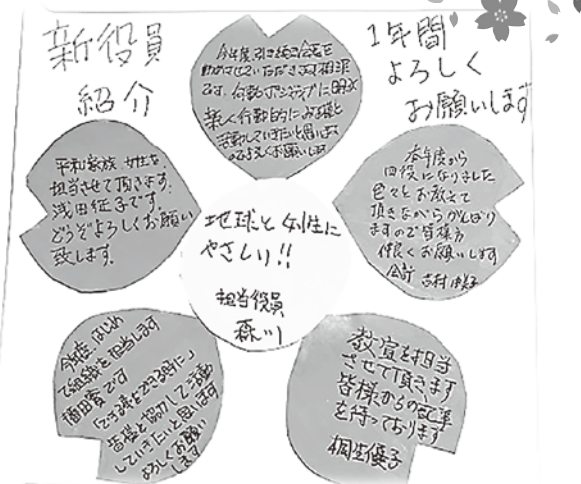 新役員
紹介
1年間
よろしく
お願いします
今年度引き続き会長を
務めさせていただきます
です。何事もポジティブに明るく
楽しく行動的に皆様と
活動していきたいと思います
よろしくお願いします
平和家族 女性を
担当させて頂きます。
浅田征子です。
どうぞよろしくお願い
致します。
本年度から
四役になりました
色々とお教えて
頂きながらがんばり
ますので皆様方
仲良くお願いします
会計 吉村
地球と女性に
やさしい!!
担当役員
森川
今年度、はじめ
て組織を担当します
です
「できる事をできる時に」
皆様と協力して活動
していきたいと思います
よろしくお願い
します
教宣を担当
させて頂きます
皆様からの記事
を待っております
桐生優子